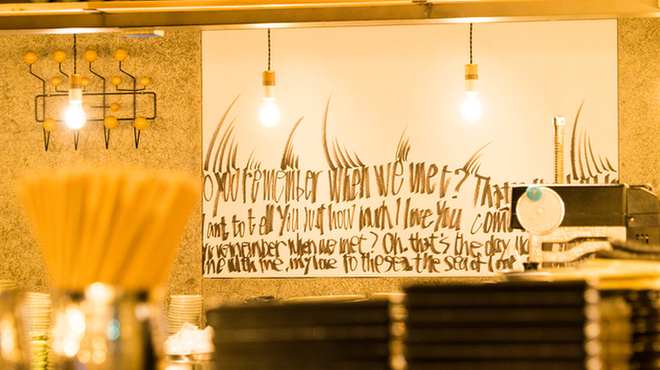 o you remember when we met? That
want to tell you just how much I love you com
remember when we met? Oh, that's the day
me with me, my love to the sea, the sea of love